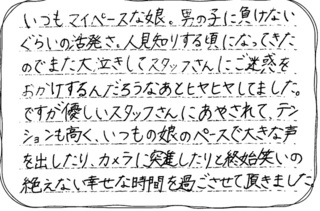 いつもマイペースな娘。男の子に負けない
ぐらいの活発さ。人見知りする頃になってきた
のでまた大泣きしてスタッフさんにご迷惑を
おかけするんだろうなあとヒヤヒヤしてました。
ですが優しいスタッフさんにあやされて、テン
ションも高く、いつもの娘のペースで大きな声
を出したり、カメラに突進したりと終始笑いの
絶えない幸せな時間を過ごさせて頂きました